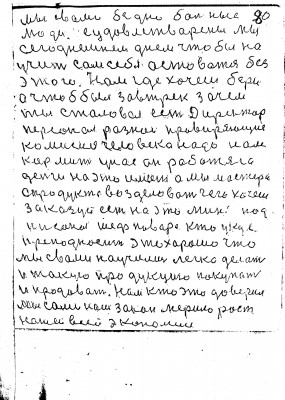 мы свами бедно богные 80
люди. судовлетварены мы
сегоднешнем днем что бы на
учит сам себя остоватся без
этого. Нам где хочеш бери
а что б был завтрек зачем
ты сталовая есть Директор
персонал разной правиряющие
комисия человека надо и ам
кармит у нас он работяга
дети на это имеет а мы мастера
с продукта возделоват чего хочеш
заказух ест на это минг под
писаны шеф повара кто у куда
преподносит это хорошо что
мы свами научили легко делат
и такую про дукцию покупат
и продоват. Нам кто это доверил
мы сами наш закон мерило рост
нашей всей экономии